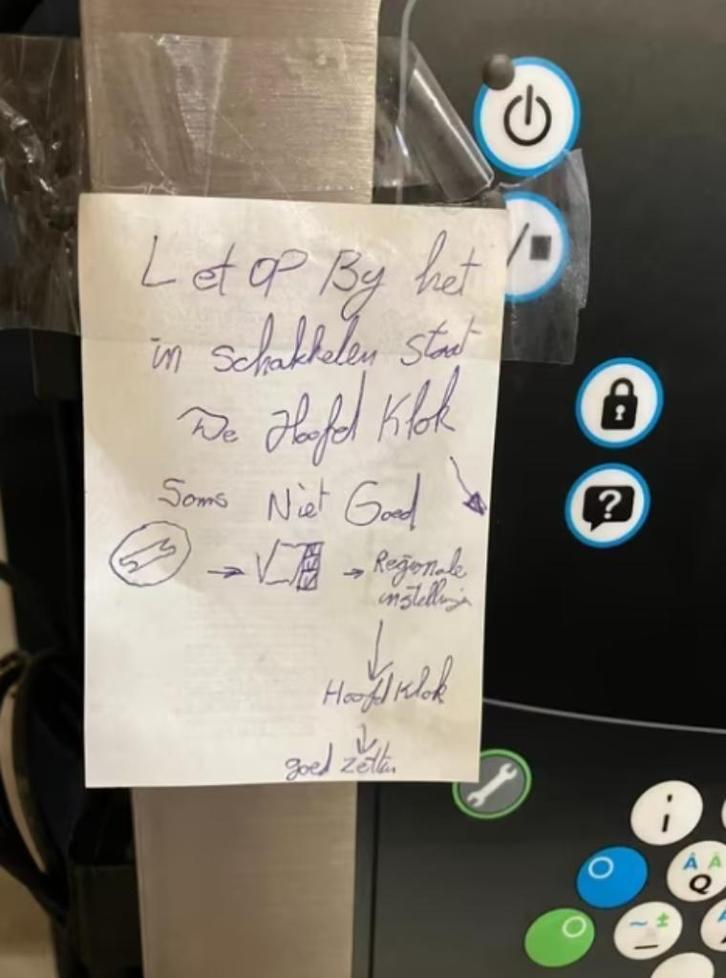 Let op By het
in schakkelen staat
De Hoofd Klok
Soms Niet Goed
Regionale
instellingen
Hoofd Klok
goed zetten
?
i
Â Ã
Q
~ ±
_